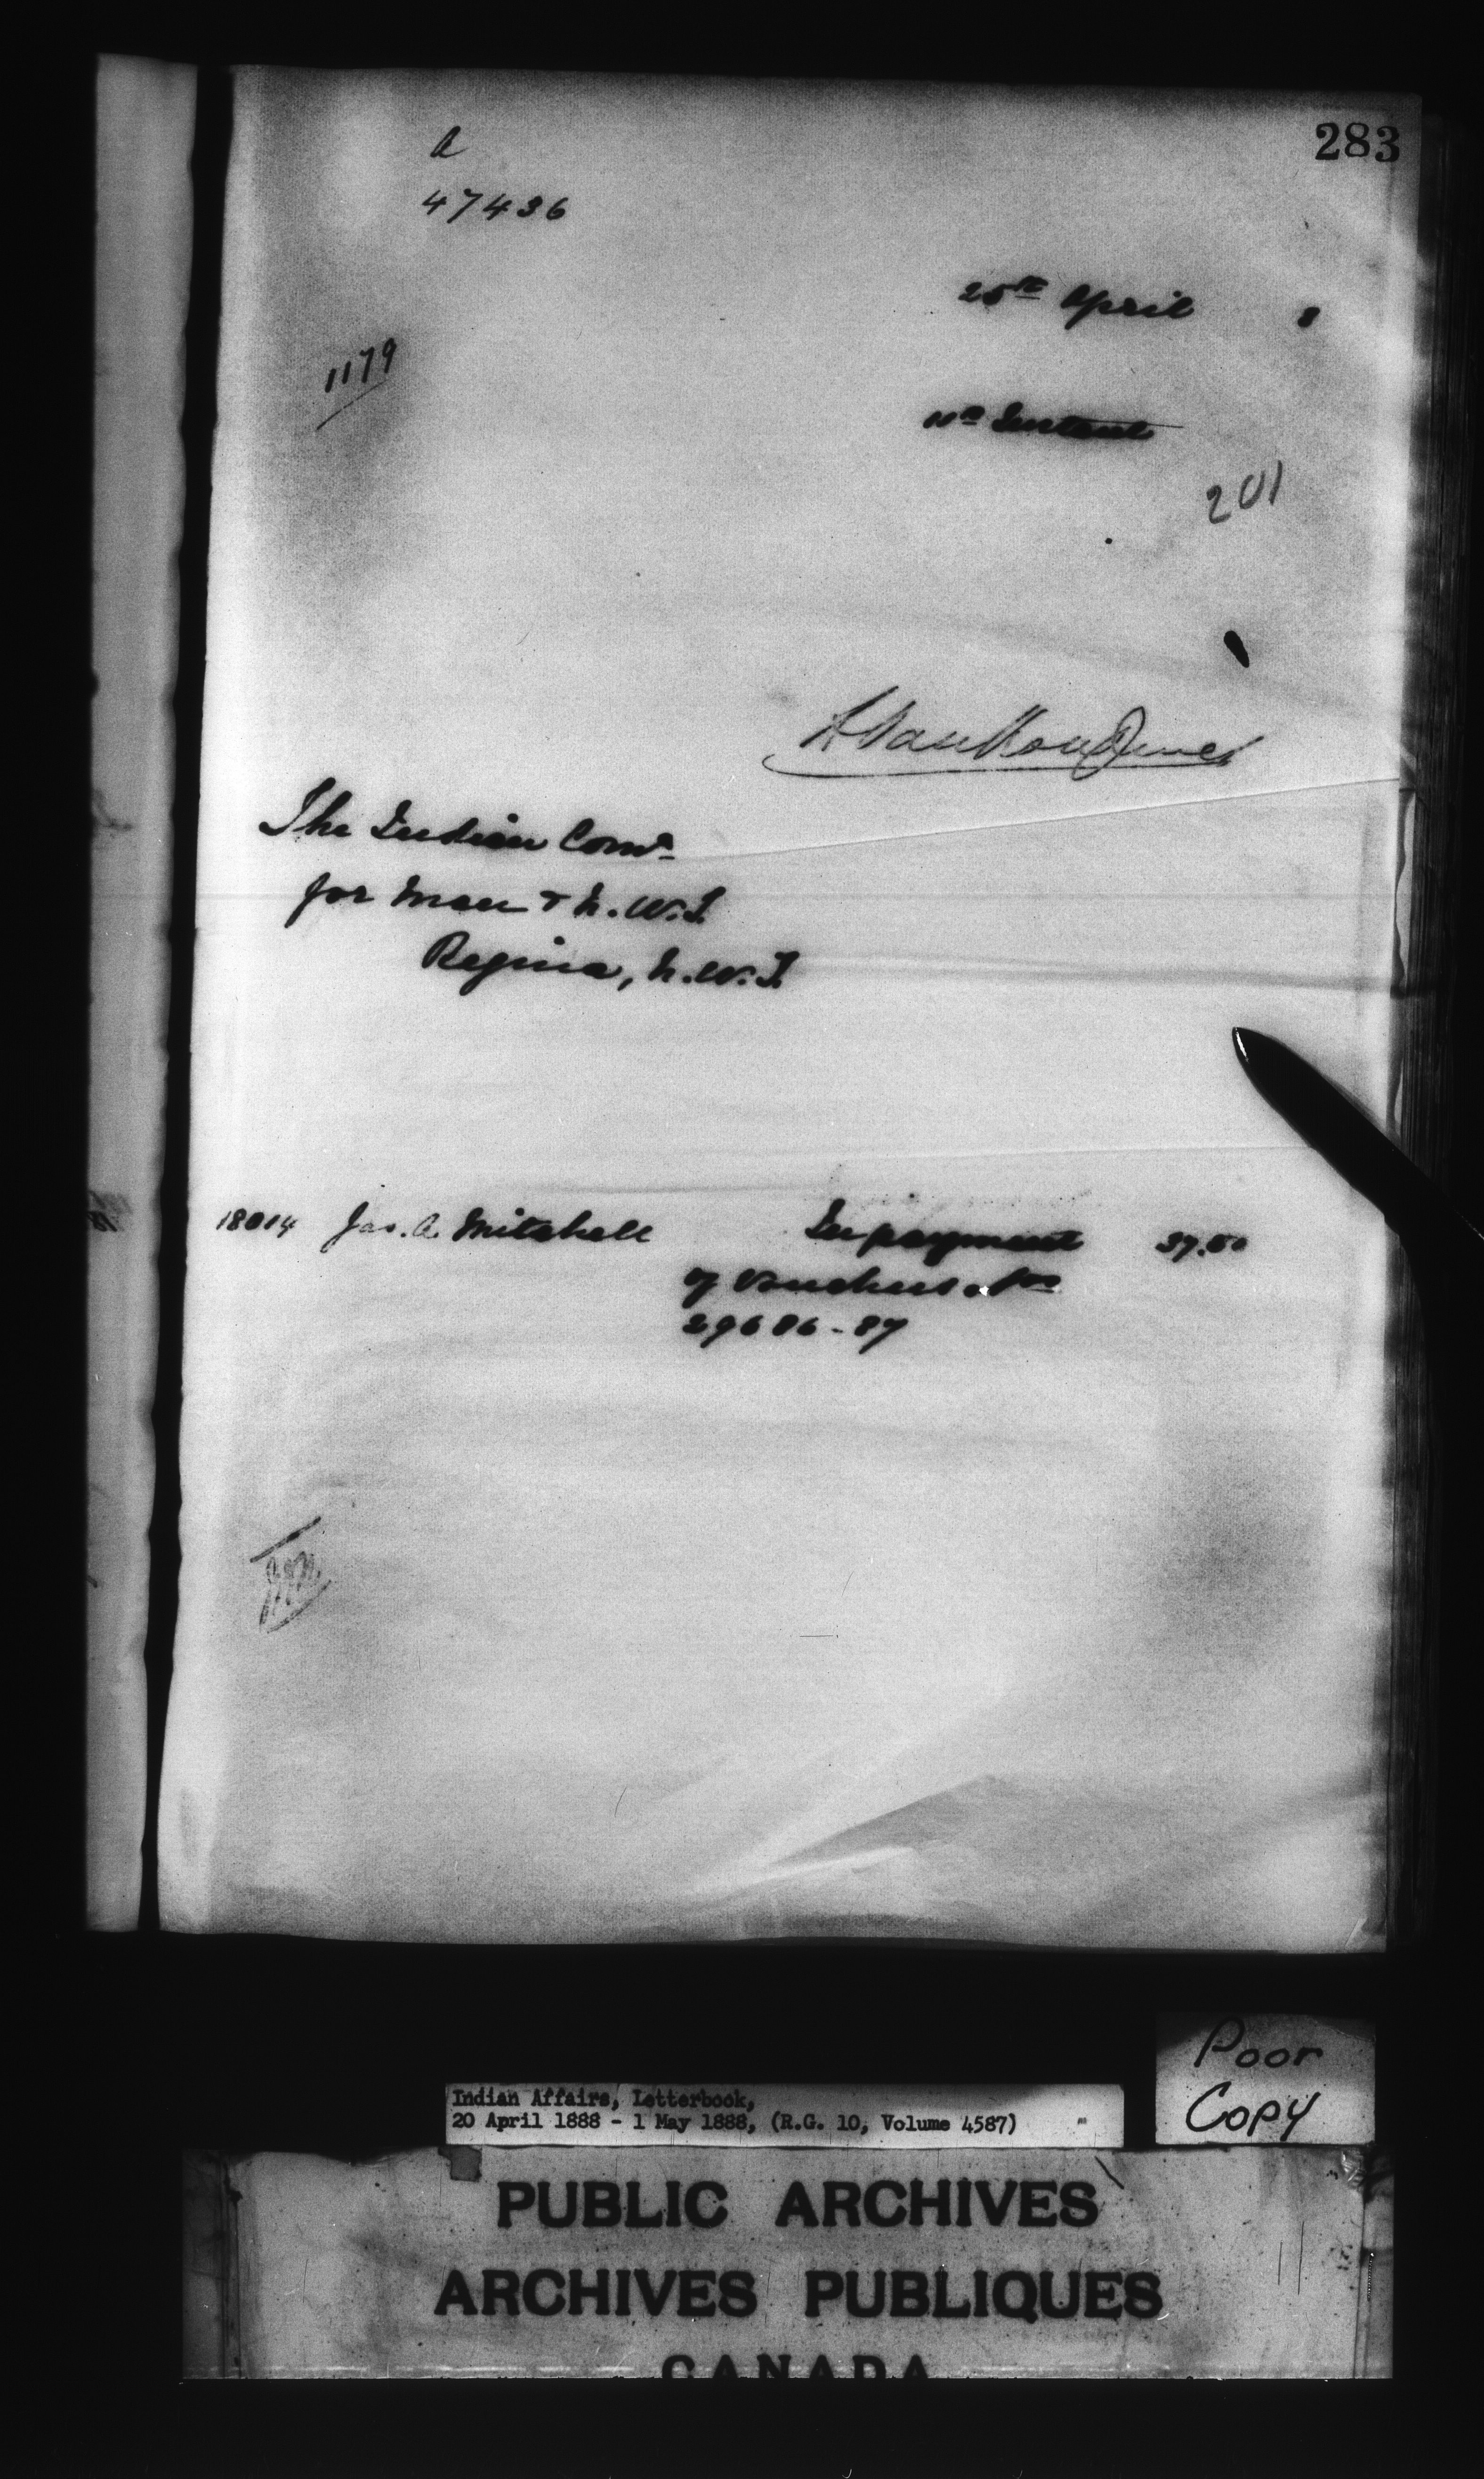 283
A
47436
25th April 8
1179
11th Instant
201
L. VanKoughnet
The Indian Comr
for Man & N.W.T.
Regina, N.W.T.
18014 Jas. A. Mitchell In payment 37.50
of Vouchers Nos
29686-87
Poor
Copy
Indian Affairs, Letterbook,
20 April 1888 - 1 May 1888, (R.G. 10, Volume 4587)
PUBLIC ARCHIVES
ARCHIVES PUBLIQUES
CANADA